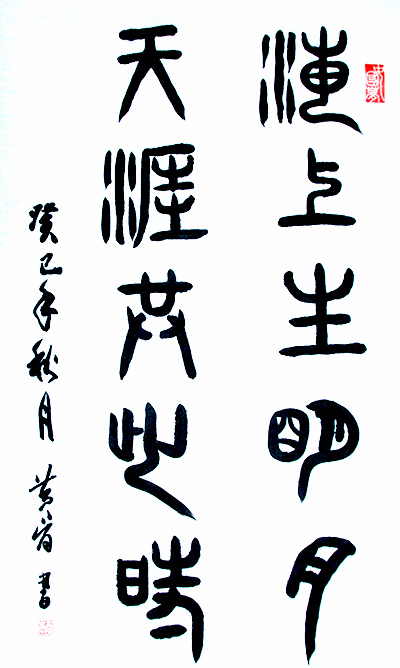 海上生明月
天涯共此時
癸巳年秋月 黄 書